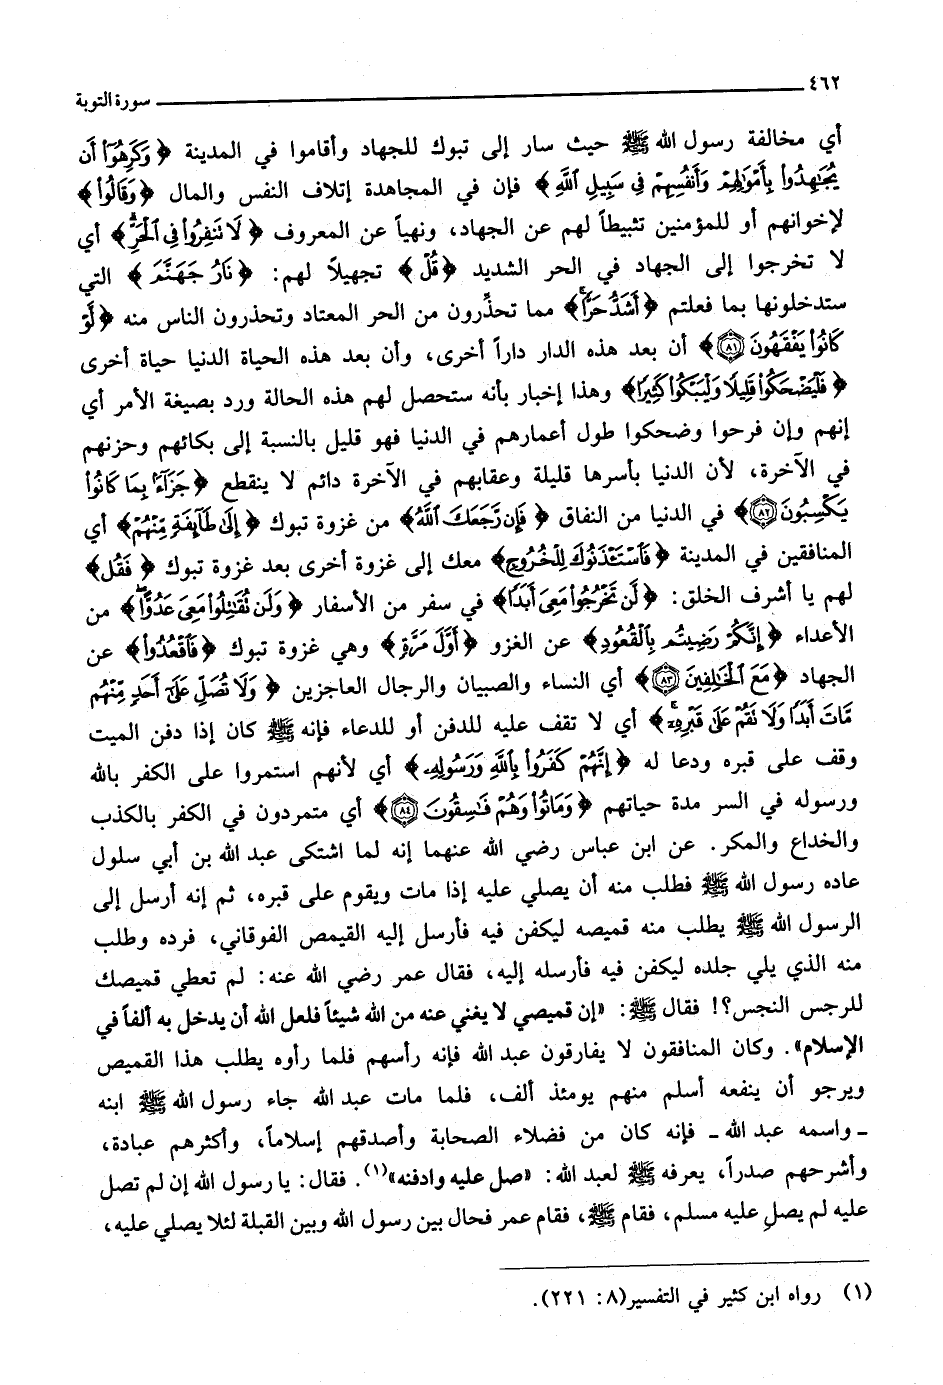 ٤٦٢ سورة التوبة
أي مخالفة رسول الله ﷺ حيث سار إلى تبوك للجهاد وأقاموا في المدينة ﴿وَكَرِهُوٓا۟ أَن
يُجَٰهِدُوا۟ بِأَمْوَٰلِهِمْ وَأَنفُسِهِمْ فِى سَبِيلِ ٱللَّهِ﴾ فإن في المجاهدة إتلاف النفس والمال ﴿وَقَالُوا۟﴾
لإخوانهم أو للمؤمنين تثبيطاً لهم عن الجهاد، ونهياً عن المعروف ﴿لَا تَنفِرُوا۟ فِى ٱلْحَرِّ﴾ أي
لا تخرجوا إلى الجهاد في الحر الشديد ﴿قُلْ﴾ تجهيلاً لهم: ﴿نَارُ جَهَنَّمَ﴾ التي
ستدخلونها بما فعلتم ﴿أَشَدُّ حَرًّا﴾ مما تحذّرون من الحر المعتاد وتحذرون الناس منه ﴿لَّوْ
كَانُوا۟ يَفْقَهُونَ ٨١﴾ أن بعد هذه الدار داراً أخرى، وأن بعد هذه الحياة الدنيا حياة أخرى
﴿فَلْيَضْحَكُوا۟ قَلِيلًا وَلْيَبْكُوا۟ كَثِيرًا﴾ وهذا إخبار بأنه ستحصل لهم هذه الحالة ورد بصيغة الأمر أي
إنهم وإن فرحوا وضحكوا طول أعمارهم في الدنيا فهو قليل بالنسبة إلى بكائهم وحزنهم
في الآخرة، لأن الدنيا بأسرها قليلة وعقابهم في الآخرة دائم لا ينقطع ﴿جَزَآءًۢ بِمَا كَانُوا۟
يَكْسِبُونَ ٨٢﴾ في الدنيا من النفاق ﴿فَإِن رَّجَعَكَ ٱللَّهُ﴾ من غزوة تبوك ﴿إِلَىٰ طَآئِفَةٍ مِّنْهُمْ﴾ أي
المنافقين في المدينة ﴿فَٱسْتَـْٔذَنُوكَ لِلْخُرُوجِ﴾ معك إلى غزوة أخرى بعد غزوة تبوك ﴿فَقُل﴾
لهم يا أشرف الخلق: ﴿لَّن تَخْرُجُوا۟ مَعِىَ أَبَدًا﴾ في سفر من الأسفار ﴿وَلَن تُقَٰتِلُوا۟ مَعِىَ عَدُوًّا﴾ من
الأعداء ﴿إِنَّكُمْ رَضِيتُم بِٱلْقُعُودِ﴾ عن الغزو ﴿أَوَّلَ مَرَّةٍ﴾ وهي غزوة تبوك ﴿فَٱقْعُدُوا۟﴾ عن
الجهاد ﴿مَعَ ٱلْخَٰلِفِينَ ٨٣﴾ أي النساء والصبيان والرجال العاجزين ﴿وَلَا تُصَلِّ عَلَىٰٓ أَحَدٍ مِّنْهُم
مَّاتَ أَبَدًا وَلَا تَقُمْ عَلَىٰ قَبْرِهِۦٓ﴾ أي لا تقف عليه للدفن أو للدعاء فإنه ﷺ كان إذا دفن الميت
وقف على قبره ودعا له ﴿إِنَّهُمْ كَفَرُوا۟ بِٱللَّهِ وَرَسُولِهِۦ﴾ أي لأنهم استمروا على الكفر بالله
ورسوله في السر مدة حياتهم ﴿وَمَاتُوا۟ وَهُمْ فَٰسِقُونَ ٨٤﴾ أي متمردون في الكفر بالكذب
والخداع والمكر. عن ابن عباس رضي الله عنهما إنه لما اشتكى عبد الله بن أبي سلول
عاده رسول الله ﷺ فطلب منه أن يصلي عليه إذا مات ويقوم على قبره، ثم إنه أرسل إلى
الرسول الله ﷺ يطلب منه قميصه ليكفن فيه فأرسل إليه القيمص الفوقاني، فرده وطلب
منه الذي يلي جلده ليكفن فيه فأرسله إليه، فقال عمر رضي الله عنه: لم تعطي قميصك
للرجس النجس؟! فقال ﷺ: «إن قميصي لا يغني عنه من الله شيئاً فلعل الله أن يدخل به ألفاً في
الإسلام». وكان المنافقون لا يفارقون عبد الله فإنه رأسهم فلما رأوه يطلب هذا القميص
ويرجو أن ينفعه أسلم منهم يومئذ ألف، فلما مات عبد الله جاء رسول الله ﷺ ابنه
ـ واسمه عبد الله ـ فإنه كان من فضلاء الصحابة وأصدقهم إسلاماً، وأكثرهم عبادة،
وأشرحهم صدراً، يعرفه ﷺ لعبد الله: «صل عليه وادفنه»(١). فقال: يا رسول الله إن لم تصل
عليه لم يصلِ عليه مسلم، فقام ﷺ، فقام عمر فحال بين رسول الله وبين القبلة لئلا يصلي عليه،
(١) رواه ابن كثير في التفسير(٨: ٢٢١).